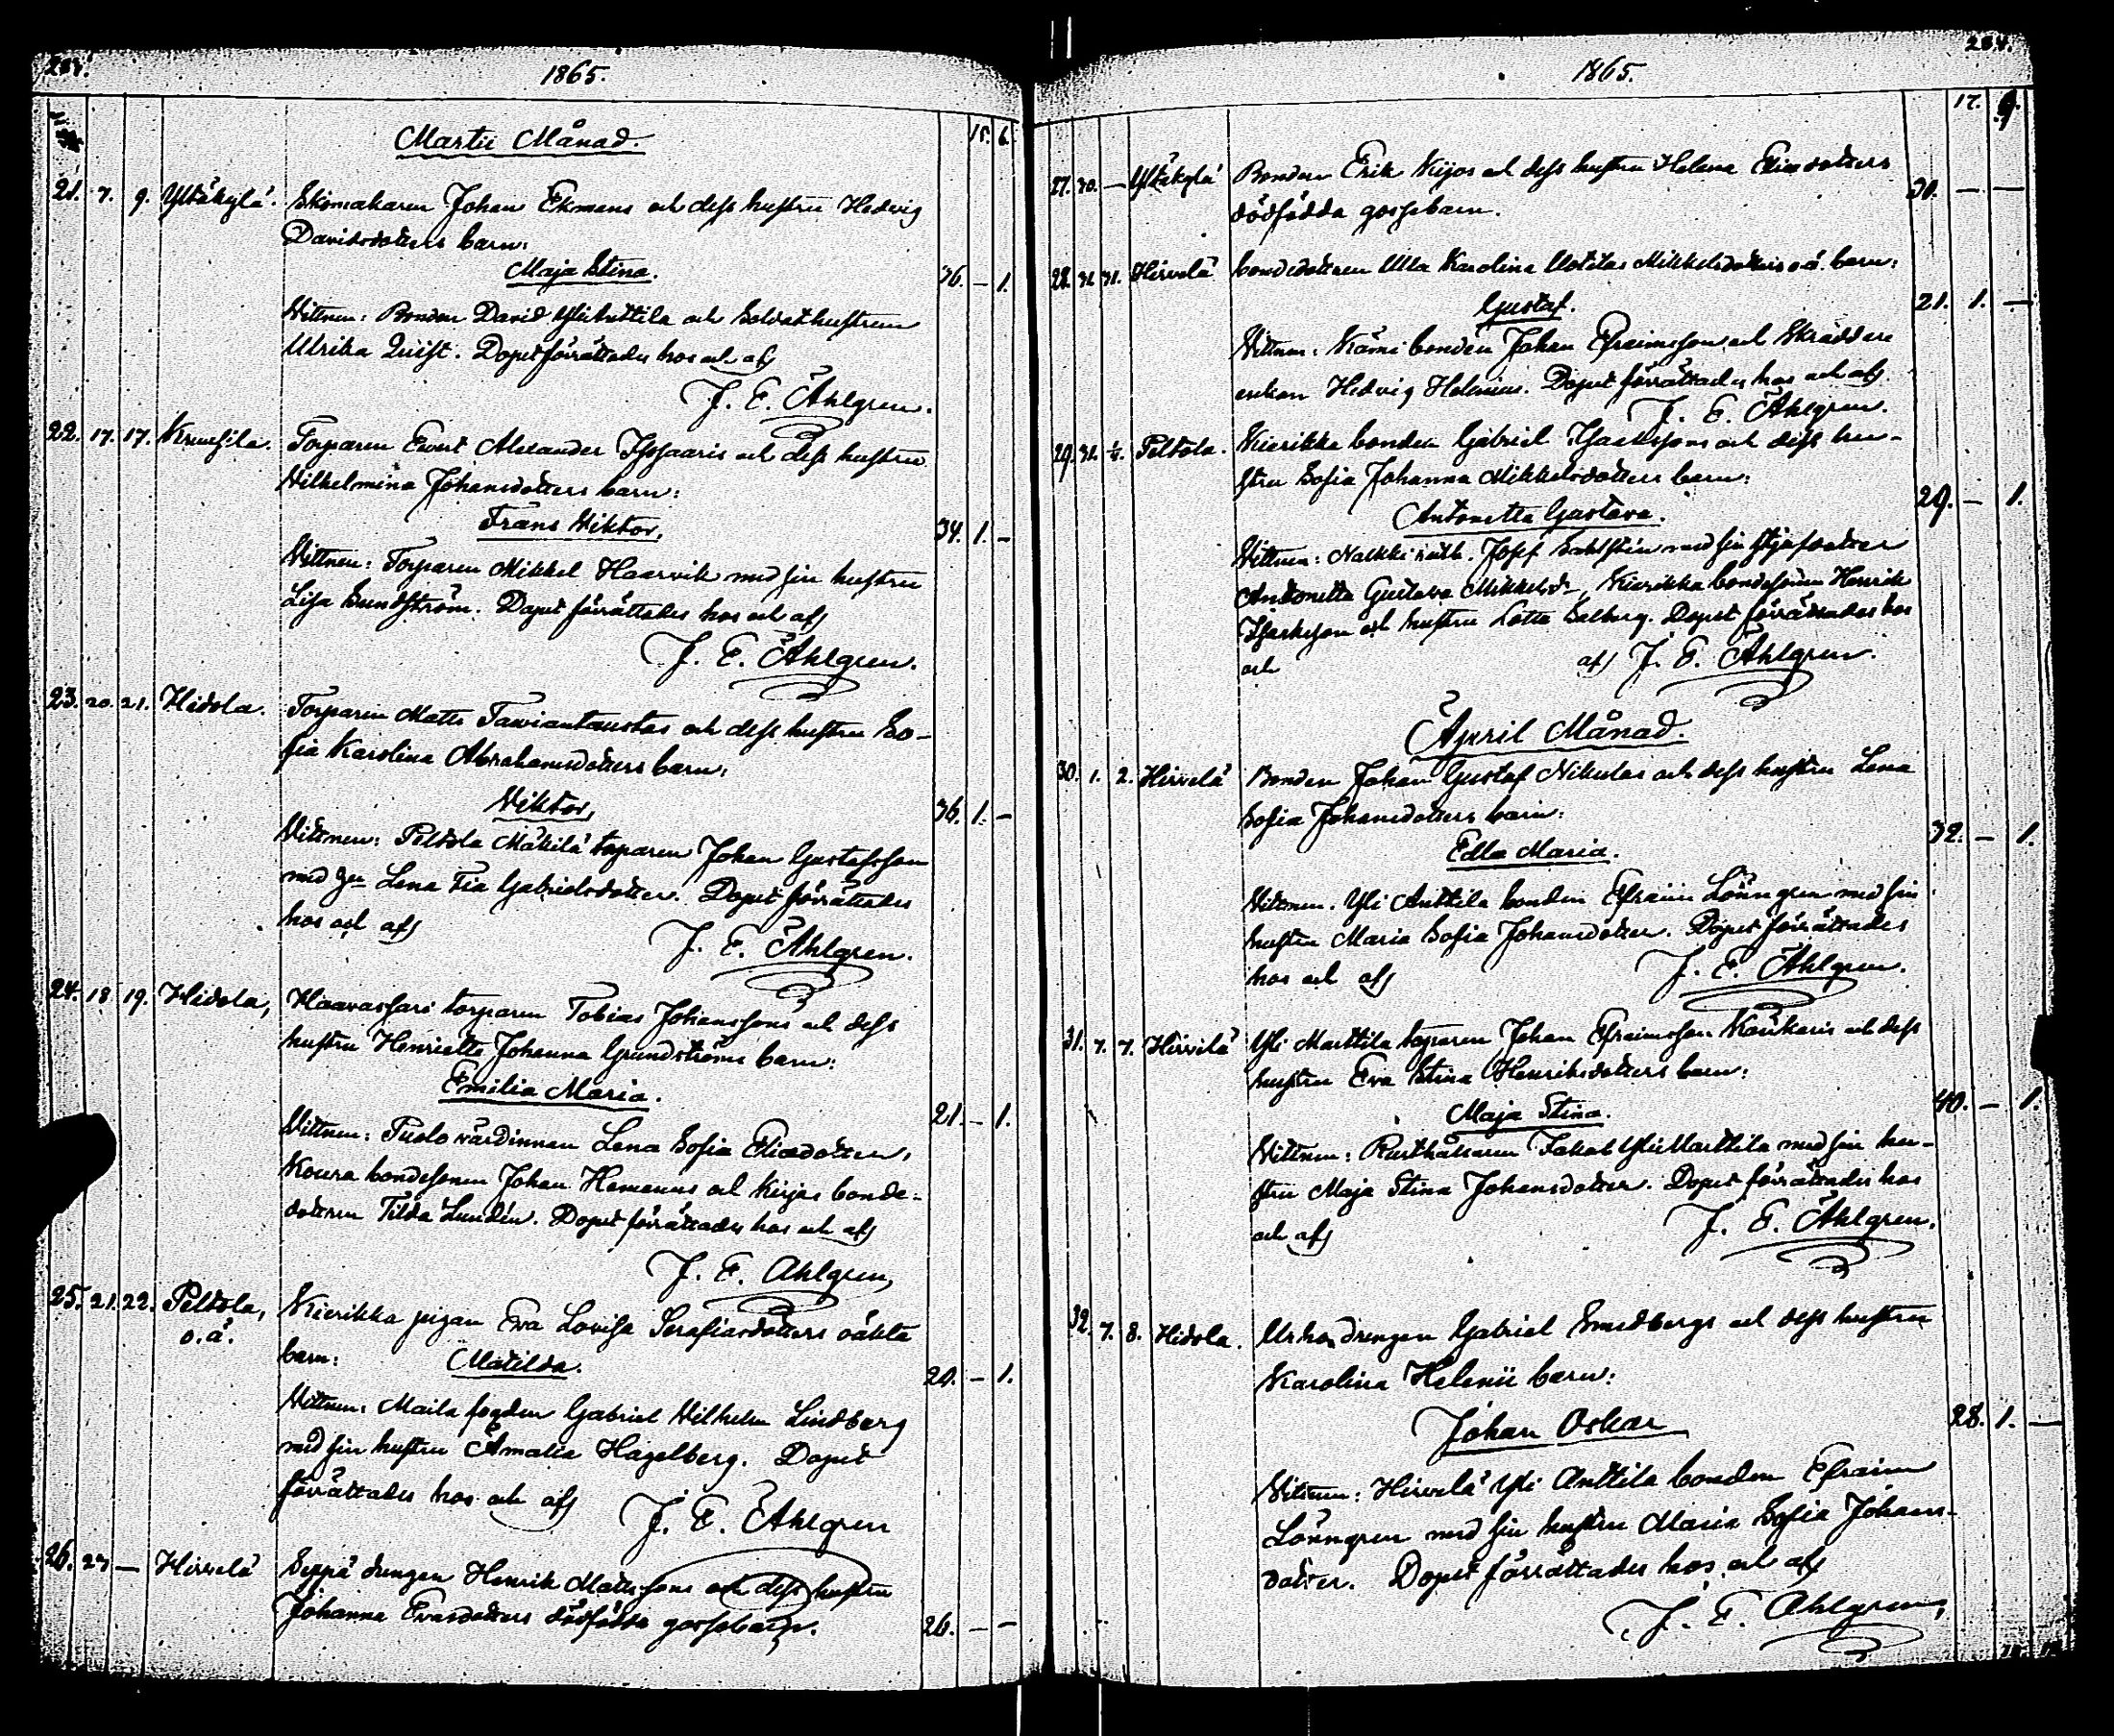 1865.
Martii Månad.
15. 6.
21. 7. 9. Yltäkylä. Skomakaren Johan Ekmans och dess hustru Hedwig
Davidsdotters barn:
Maja Stina. 36. — 1.
Vittnen: Bonden David och Soldathustrun
Ulrika Quist. Dopet förrättades hos och af
J. E. Ahlgren.
22. 17. 17. Torparen Evert Alexander och dess hustru
Vilhelmina Johansdotters barn:
Frans Viktor. 34. 1. —
Vittnen: Torparen Mikkel Haarvik med sin hustru
Lisa Sundström. Dopet förrättades hos och af
J. E. Ahlgren.
23. 20. 21. Hidola. Torparen Matts och dess hustru So-
fia Karolina Abrahamsdotters barn:
Viktor, 36. 1. —
Vittnen: Peltola Mäkilä torparen Johan Gustafsson
med Lena Fia Gabrielsdotter. Dopet förrättades
hos och af
J. E. Ahlgren.
24. 18 19. Hidola, torparen Tobias Johanssons och dess
hustru Henriette Johanna Grundströms barn:
Emilia Maria. 21. — 1.
Vittnen: värdinnan Lena Sofia Eliædotter,
Koura bondesonen Johan Hemanus och Kirjas bonde-
dottren Tilda Lundén. Dopet förrättades hos och af
J. E. Ahlgren,
25. 21. 22. Peltola, Kierikka pigan Eva Lovisa Serafiasdotters oäkta
o.ä.
barn: Matilda. 20. — 1.
Vittnen: Maila fogden Gabriel Vilhelm Lindberg
med sin hustru Amalia Hagelberg. Dopet
förrättades hos och af J. E. Ahlgren
26. 27 — Hirvelä Seppä drengen Henrik Mattssons och dess hustru
Johanna Evasdotters dödfödda gossebarn. 26. — —
1865.
17. 9.
27. 30. — Yltäkylä Bonden Erik Kijos och dess hustru Helena Eliædotters 30. — —
dödfödda gossebarn.
28. 31. 31. Hirvelä bondedottren Ulla Karolina Mikkelsdotters o.ä. barn:
Gustaf. 21. 1. —
Vittnen: Kärni bonden Johan Efraimsson och Skräddare
enkan Hedvig Helenius. Dopet förrättades hos och af
J. E. Ahlgren.
29. 31. 1/4. Peltola. Kierikka bonden Gabriel Isakssons och dess hu-
stru Sofia Johanna Mikkelsdotters barn:
Antonetta Gustava. 29. — 1.
Vittnen: Josef Sahlstén med sin styfdotter
Antonetta Gustava Mikkelsd., Kierikka bondesonen Henrik
Isaksson och hustru Lotta Salberg. Dopet förrättades hos
och af J. E. Ahlgren.
April Månad.
30. 1. 2. Hirvelä Bonden Johan Gustaf Nikulas och dess hustru Lena
Sofia Johansdotters barn:
Edla Maria. 32. — 1.
Vittnen. Yli Anttila bonden Efraim Lönngren med sin
hustru Maria Sofia Johansdotter. Dopet förrättades
hos och af J. E. Ahlgren.
31. 7. 7. Hirvelä Yli Marttila torparen Johan Efraimsson och dess
hustru Eva Stina Henriksdotters barn:
Maja Stina. 40. — 1.
Vittnen: Rusthållaren Jakob Yli Marttila med sin hu-
stru Maja Stina Johansdotter. Dopet förrättades hos
och af J. E. Ahlgren.
32. 7. 8. Hidola. drengen Gabriel Smedbergs och dess hustru
Karolina Helenii barn:
Johan Oskar 28. 1. —
Vittnen: Hirvelä Yli Anttila bonden Efraim
Lönngren med sin hustru Maria Sofia Johans-
dotter. Dopet förrättades hos och af
J. E. Ahlgren,